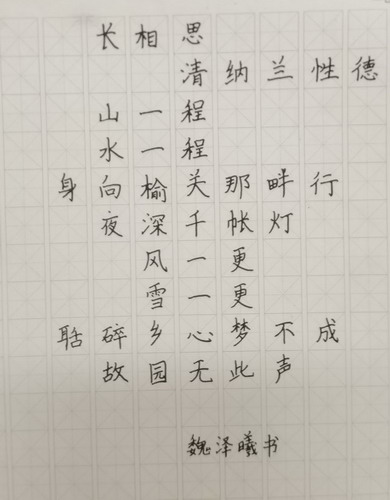 长相思
清纳兰性德
山一程
水一程
身向榆关那畔行
夜深千帐灯
风一更
雪一更
聒碎乡心梦不成
故园无此声
魏泽曦书